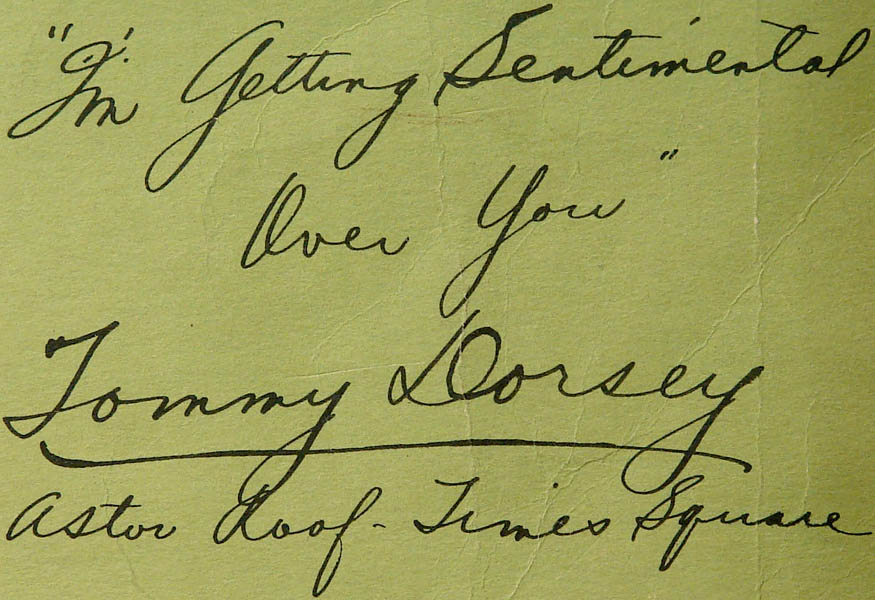 "I'm Getting Sentimental
Over You"
Tommy Dorsey
Astor Roof - Times Square